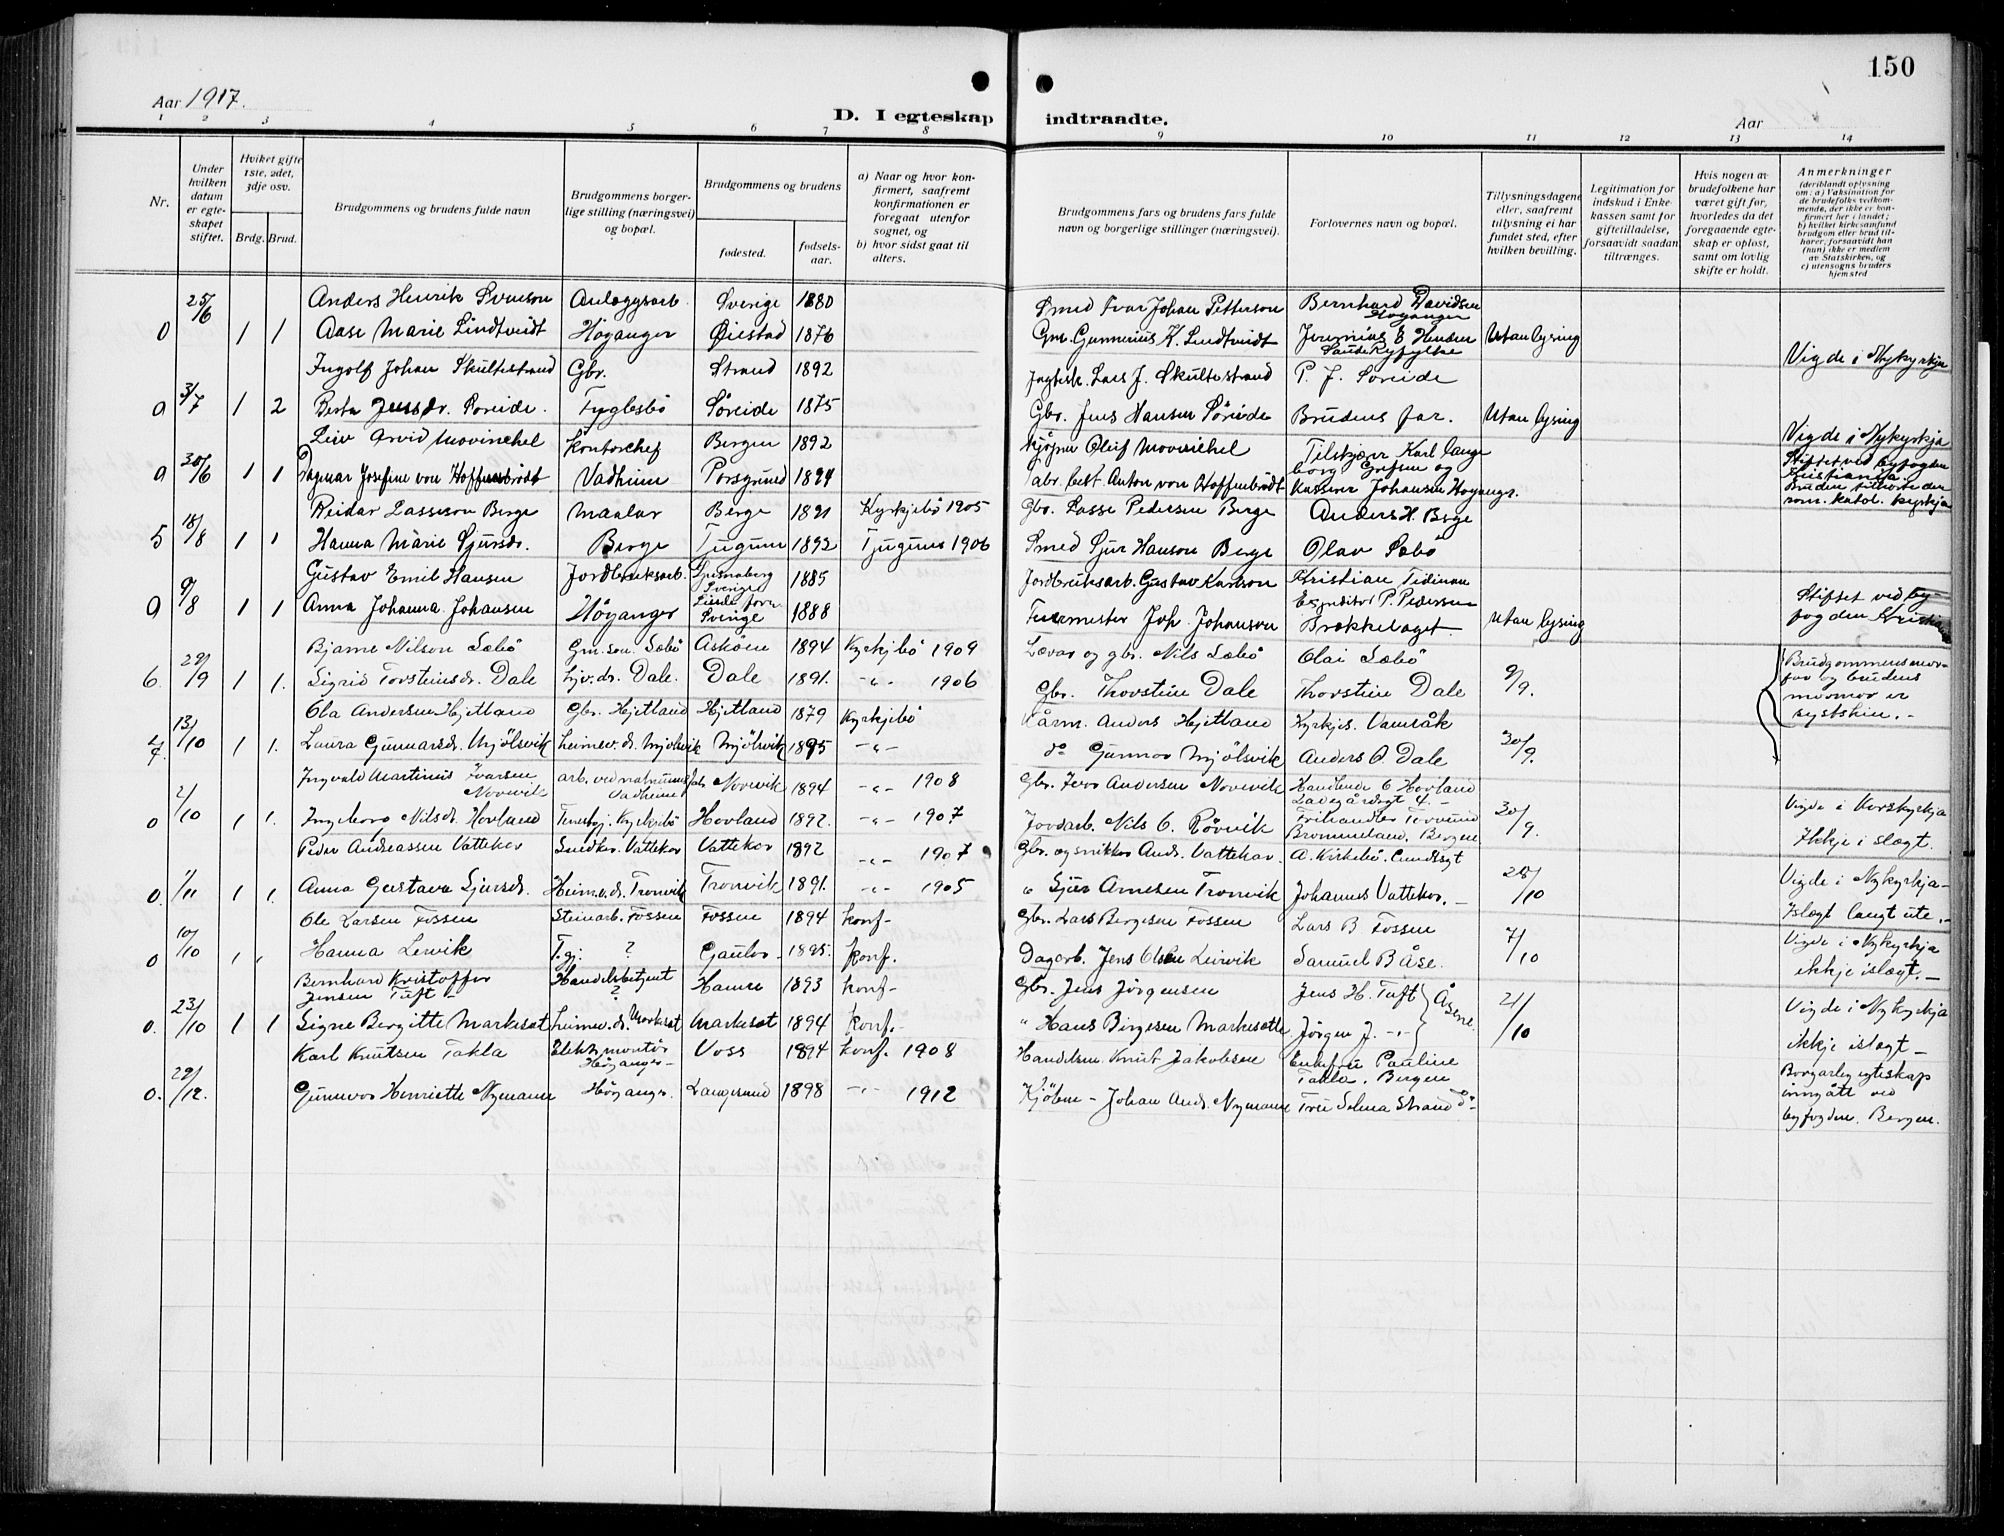 150
Aar 1917.
D. I egteskap indtraadte.
Aar
1 2 3 4 5 6 7 8 9 10 11 12 13 14
Nr.
Under hvilken datum er egteskapet stiftet.
Hvilket gifte 1ste, 2det, 3dje osv.
Brdg. Brud.
Brudgommens og brudens fulde navn
Brudgommens borgerlige stilling (næringsvei) og bopæl.
Brudgommens og brudens
fødested.
fødselsaar.
a) Naar og hvor konfirmert, saafremt konfirmationen er foregaat utenfor sognet, og
b) hvor sidst gaat til alters.
Brudgommens fars og brudens fars fulde navn og borgerlige stillinger (næringsvei).
Forlovernes navn og bopæl.
Tillysningsdagene eller, saafremt tillysning ei har fundet sted, efter hvilken bevilling.
Legitimation for indskud i Enkekassen samt for giftetilladelse, forsaavidt saadan tiltrænges.
Hvis nogen av brudefolkene har været gift før, hvorledes da det foregaaende egteskap er opløst, samt om lovlig skifte er holdt.
Anmerkninger
(deriblandt oplysning om: a) Vaksination for de brudefolks vedkommende, der ikke er konfirmert her i landet; b) hvilket kirkesamfund brudgom eller brud tilhører, forsaavidt han (hun) ikke er medlem av Statskirken, og c) utensogns bruders hjemsted
25/6 Anders Henrik Svenson Anlæggsarb. Sverige 1880 Smed Ivar Johan Petterson Bernhard Davidsen Høyanger
0 1 1 Aase Marie Lindtveidt Höyanger Øiestad 1876 Gm. Gunnerius K. Lindtveidt Jeremias E Henden Saude Ryfylke Utan lysing Vigde i Nykyrkja
Ingolf Johan Skultestrand Gbr. Strand 1892 Lars J. Skultestrand P. J. Søreide
0 3/7 1 2 Berta Jensdr. Søreide. Fuglesbö Søreide 1875 Gbr. Jens Hansen Sörèide Brudens far. Utan lysing Vigde i Nykyrkja
Leiv Arvid Movinchel Kontorchef Bergen 1892 kjøpm Oluf Movinchel
0 30/6 1 1 Dagmar Josefine von Hoffenbrödt Vadheim Porsgrund 1894 Anton von Hoffenbrödt Kasserer Johansen Høyanger. Stiftet ved byfogden Kristiania. Bruden tilhørte den rom. katol. kyrkja
18/8 Reidar Lasseson Berge Maalar Berge 1891 Kyrkjebö 1905 Gbr. Lasse Pedersen Berge Anders H. Berge
5 1 1 Hanna Marie Sjursdr. Berge Tjugum 1892 Tjugum 1906 Smed Sjur Hanson Berge Olav Sæbö
9/8 Gustav Emil Hansen Jordbruksarb. Sverige 1885 Jordbruksarb. Gustav Karlson Kristian Tidman
9 1 1 Anna Johanna Johansen Höyanger Sverige 1888 Joh. Johanson Expeditør P. Pedersen Brækkelaget. Utan lysing Stiftet ved byfogden Kristiania
29/9 Bjarne Nilson Sæbö Gm. son. Sæbö Askøen 1894 Kyrkjebö 1909 Lærar og gbr. Nils Sæbö Olai Sæbö
6 1 1. Sigrid Torsteinsdr. Dale Dale. Dale 1891. -"- 1906 Gbr. Thorstein Dale Thorstein Dale 9/9. Brudgommens morfar og brudens mormor er systskin.-
13/10 Ola Andersen Hjetland Gbr. Hjetland Hjetland 1879 Kyrkjebö Kårm. Anders Hjetland Kyrkjes. Vamråk
7. 1 1. Laura Gunnarsdr. Mjölsvik heimev. dr. Mjölsvik Mjölsvik 1895 -"- do Gunnar Mjölsvik Anders O Dale 30/9.
2/10 Ingvald Martinus Ivarsen Novevik Vadheim Novevik 1894 -"- 1908 Gbr. Ivar Andersen Novevik Handlende O Hovland Ladegårdsgt 4.-
0 1 1. Ingeborg Nilsdr. Hovland Tenestgj. Kyrkjebö Hovland 1892. -"- 1907 Jordarb. Nils O. Rövvik Brommeland. Bergen 30/9. Vigde i Korskyrkja Ikkje i slægt.
1/11 Peder Andreassen Vattekar Snedker. Vattekar Vattekar 1892 -"- 1907 Gbr. og snikkar Andr. Vattekar. A. Kirkebö.
0. 1 1. Anna Gustava Sjursdr. Heimev. dr. Tronvik Tronvik 1891. -"- 1905 " Sjur Arnesen Tronvik Johannes Vattekar.- 28/10 Vigde i Nykyrkja- Islægt langt ute.-
10/10 Ole Larsen Fossen Steinarb. Fossen Fossen 1894 konf- Gbr. Lars Bergesen Fossen Lars B Fossen
0 1 Hanna Leirvik T. gj. ? Gaular. 1895. konf. Dagarb. Jens Olsen Leirvik Samuel Båse. 7/10 Vigde i Nykyrkja ikkje islægt.-
23/10 Bernhard Kristoffer Jensen Tuft- Handelsbetjent ? Hamre 1893 konf- Gbr. Jens Jörgensen Jens H. Tuft
0. 1 1 Signe Bergitte Markeset heimev. dr. Markeset Markeset 1894 konf.- " Hans Birgesen Markesette Jörgen J. -"- Åsene 21/10 Vigde i Nykyrkja ikkje islægt-
29/12. Karl Knutsen Takla Elektr montör Höyanger- Voss 1894 konf. 1908 Handelsm. Knut Jakobsen Enkefru Pauline Takla. Bergen
0. Gunnvor Henriette Nymann Höyanger. Langesund 1898 -"- 1912 Kjöbm- Johan Andr. Nymann Frøi Selma Strand do- Borgarleg egteskap inngått ved byfogden. Bergen.